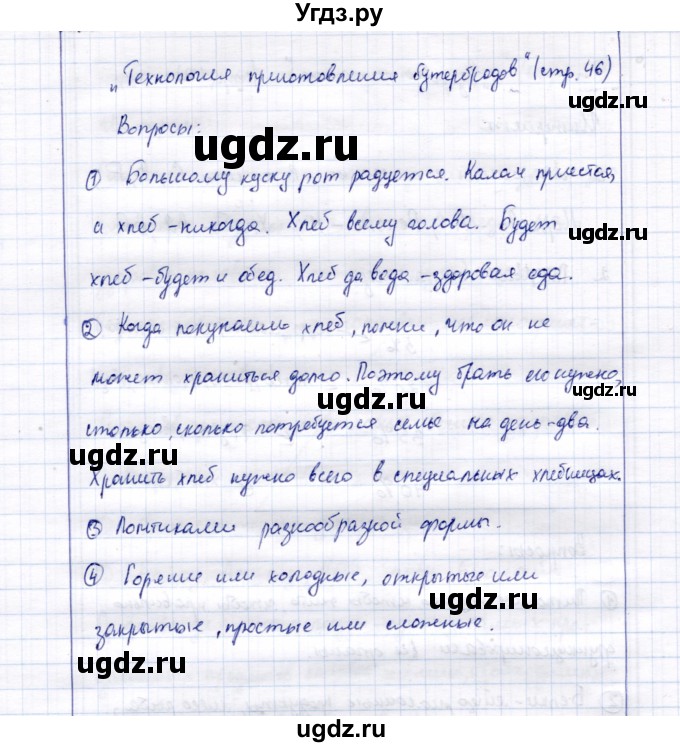 Угдз.ру
"Технология приготовления бутербродов" (стр. 46)
Вопросы:
ugdz.ru
① Большому куску рот радуется. Калач приестся,
а хлеб - никогда. Хлеб всему голова. Будет
ugdz.ru
хлеб - будет и обед. Хлеб да вода - здоровая еда.
② Когда покупаешь хлеб, помни, что он не
может храниться долго. Поэтому брать его нужно,
ugdz.ru
столько, сколько потребуется семье на день-два.
ugdz.ru
Хранить хлеб нужно всего в специальных хлебницах.
③ Ломтиками разнообразной формы.
④ Горячие или холодные, открытые или
ugdz.ru
закрытые, простые или сложные.
ugdz.ru
ugdz.ru